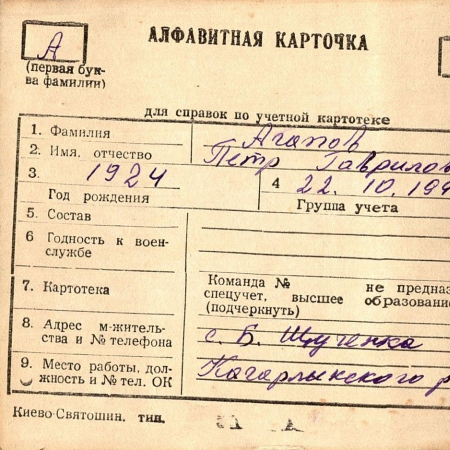 А
АЛФАВИТНАЯ КАРТОЧКА
(первая бук-
ва фамилии)
для справок по учетной картотеке
1. Фамилия Агапов
2. Имя, отчество Петр Гаврилов
3. 1924
Год рождения
4 22. 10. 194
Группа учета
5. Состав
6 Годность к воен-
службе
7. Картотека
Команда № не предназ
спецучет, высшее образовани
(подчеркнуть)
8. Адрес м-житель-
ства и № телефона
с. Б. Щученка
9. Место работы, дол-
жность и № тел. ОК
Кагарлынского р
Киево-Святошин. тип.